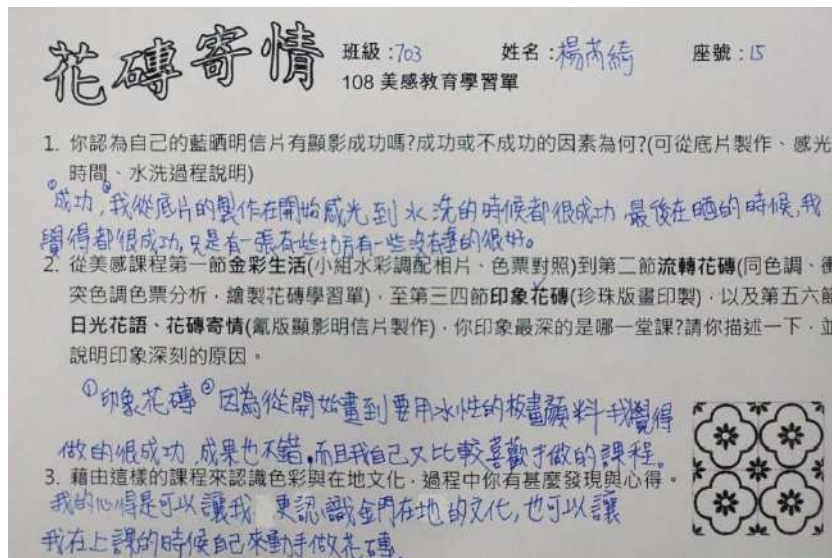 花磚寄情 班級:703 姓名:楊芮綺 座號:15
108 美感教育學習單
1. 你認為自己的藍晒明信片有顯影成功嗎?成功或不成功的因素為何?(可從底片製作、感光
時間、水洗過程說明)
①成功,②我從底片的製作在開始感光到水洗的時候都很成功,最後在晒的時候,我
覺得都很成功,只是有一張有些地方有一些沒有蓋的很好。
2. 從美感課程第一節金彩生活(小組水彩調配相片、色票對照)到第二節流轉花磚(同色調、衝
突色調色票分析,繪製花磚學習單),至第三四節印象花磚(珍珠版畫印製),以及第五六節
日光花語、花磚寄情(氰版顯影明信片製作),你印象最深的是哪一堂課?請你描述一下,並
說明印象深刻的原因。
①印象花磚②因為從開始畫到要用水性的板畫顏料我覺得
做的很成功,成果也不錯。而且我自己又比較喜歡手做的課程。
3. 藉由這樣的課程來認識色彩與在地文化,過程中你有甚麼發現與心得。
我的心得是可以讓我更認識金門在地的文化,也可以讓
我在上課的時候自己來動手做花磚。